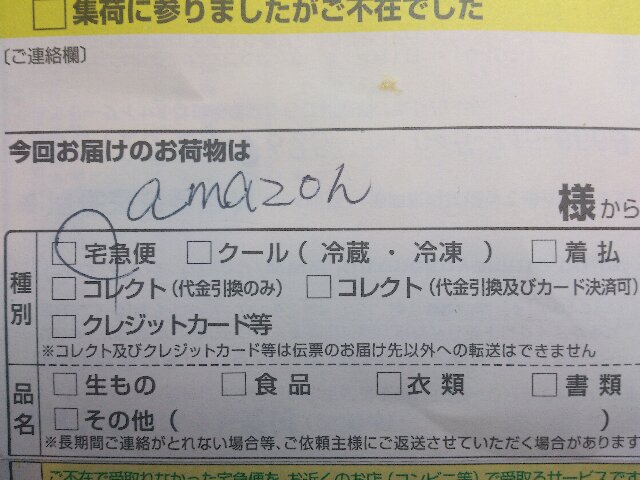 □集荷に参りましたがご不在でした
〔ご連絡欄〕
今回お届けのお荷物は
amazon
様から
種別
□宅急便 □クール(冷蔵・冷凍) □着払
□コレクト(代金引換のみ) □コレクト(代金引換及びカード決済可)
□クレジットカード等
※コレクト及びクレジットカード等は伝票のお届け先以外への転送はできません
品名
□生もの □食品 □衣類 □書類
□その他( )
※長期間ご連絡がとれない場合等、ご依頼主様にご返送させていただく場合があります
ご不在で受取れなかった宅急便を、お近くのお店(コンビニ等)で受取るサービスです